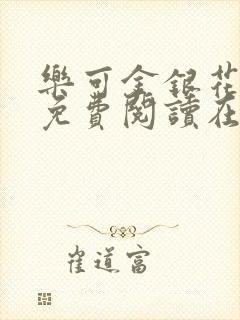 樂可金銀花
免費閱讀在
雀道富